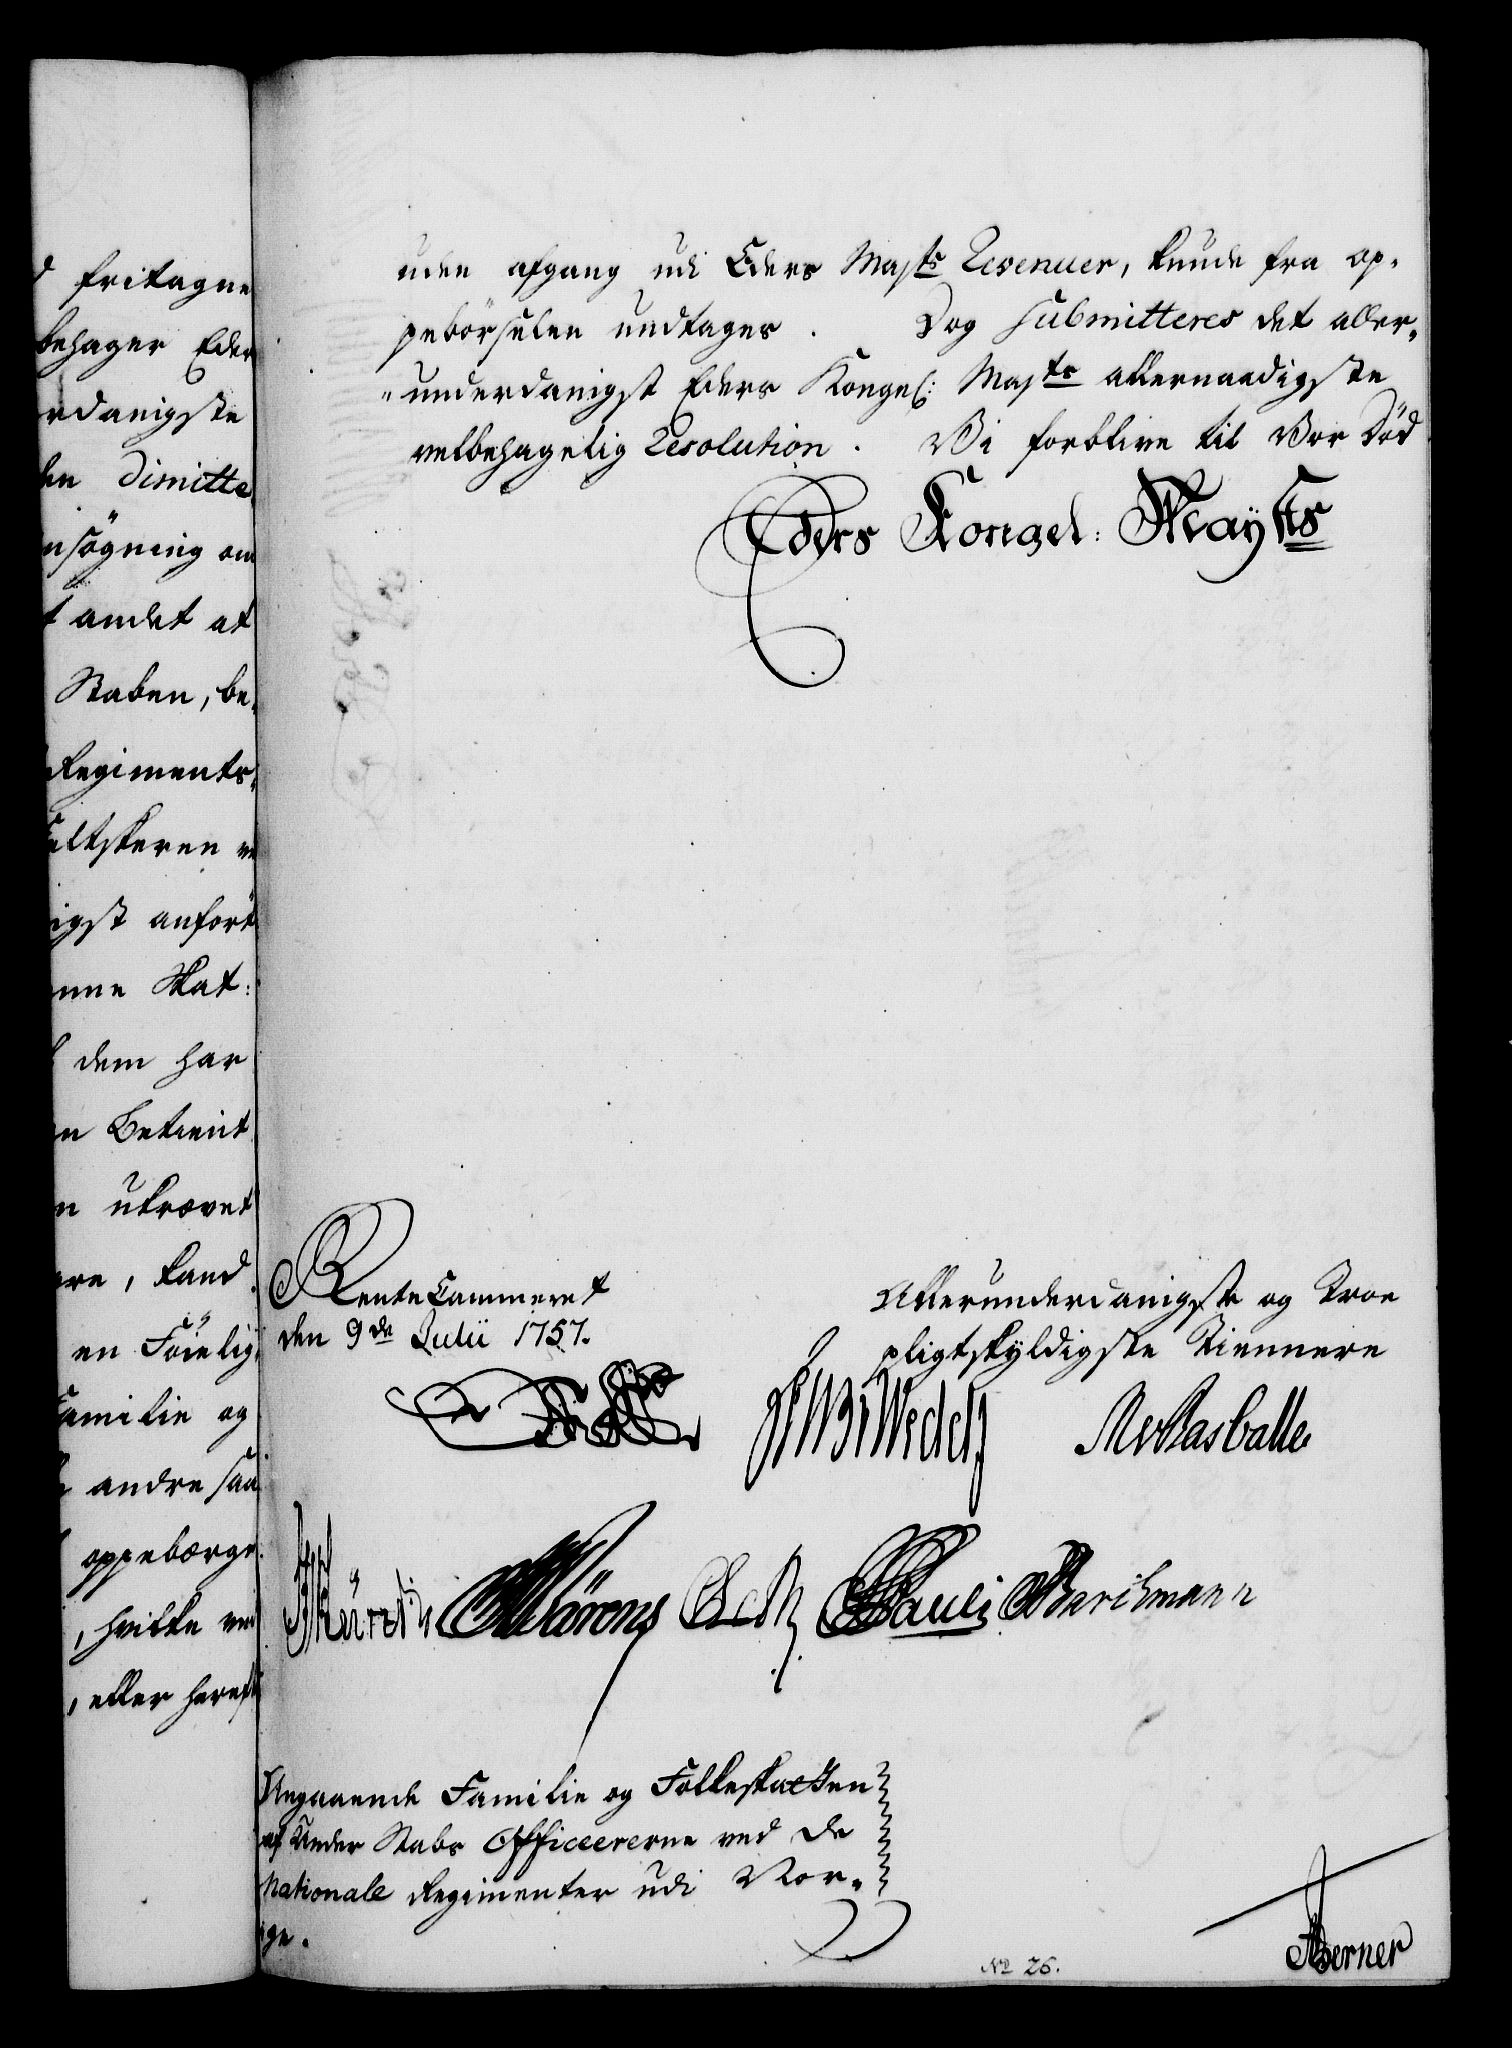 d fritagne
behager Eder
rdanigste
den dimitte
nsögning om
t andet at
Staben, be-
Regiments-
eltskeren ve
igst anfört
nne Skat:
dem har
n Betient
n udkrævet
re, kand
en Föielig
Familie og
andre saa
oppebærge
, hvilke ved
, eller hereft
uden afgang udi Eders Majts Revenuer, kunde fra op-
pebörselen undtages. Dog submitteres det aller-
underdanigst Eders Kongel: Majts allernaadigste
velbehagelig Resolution. Vi forblive til Vor Död
Eders Kongel: Mayts
RenteCammeret
den 9de Julii 1757.
Allerunderdanigste og Troe
pligtskyldigste Tiennere
Wedel
Pauli
Angaaende Familie og Folkeskatten
af Under Stabs Officeererne ved de
Nationale Regimenter udi Nor-
ge.
Berner
No 26.